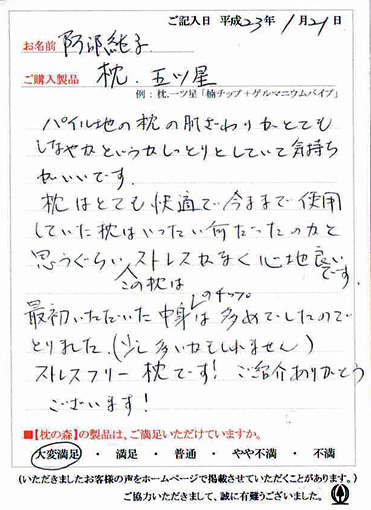 ご記入日 平成23年 1月21日
お名前 阿部純子
ご購入製品 枕. 五ツ星
例：枕.一ツ星「楠チップ＋ゲルマニウムパイプ」
パイル地の枕の肌ざわりがとても
しなやかというかしっとりとしていて気持ち
がいいです.
枕はとても快適で今ままで使用
していた枕はいったい何だったのかと
思うぐらいストレスがなく心地良い
です.
この枕は
最初いただいた中身は多めでしたので
のチップ
とりました.(少し多いかもしれません)
ストレスフリー枕です! ご紹介ありがとう
ございます!
■【枕の森】の製品は、ご満足いただけていますか。
大変満足 ・ 満足 ・ 普通 ・ やや不満 ・ 不満
(いただきましたお客様の声をホームページで掲載させていただくことがあります。)
ご協力いただきまして、誠に有難うございました。